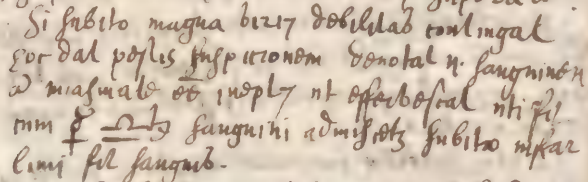 Si subito magna viriū debilitas contingat
hoc dat pestis suspicionem denotat n. sanguinem
a miasmate esse ineptū ut effervescat uti fit
cum sanguini admiscetʒ subito instar
limi fit sanguis.